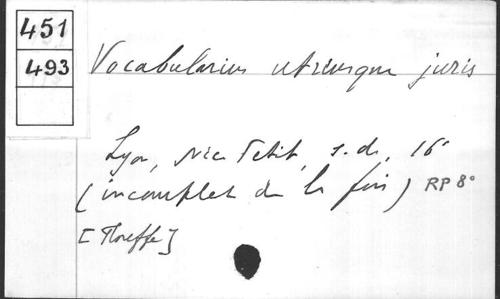 451
493
Vocabularius utriusque juris
Lyon, Nic Petit, s.d., 16°
(incomplet de la fin) RP 8°
[Floreffe]